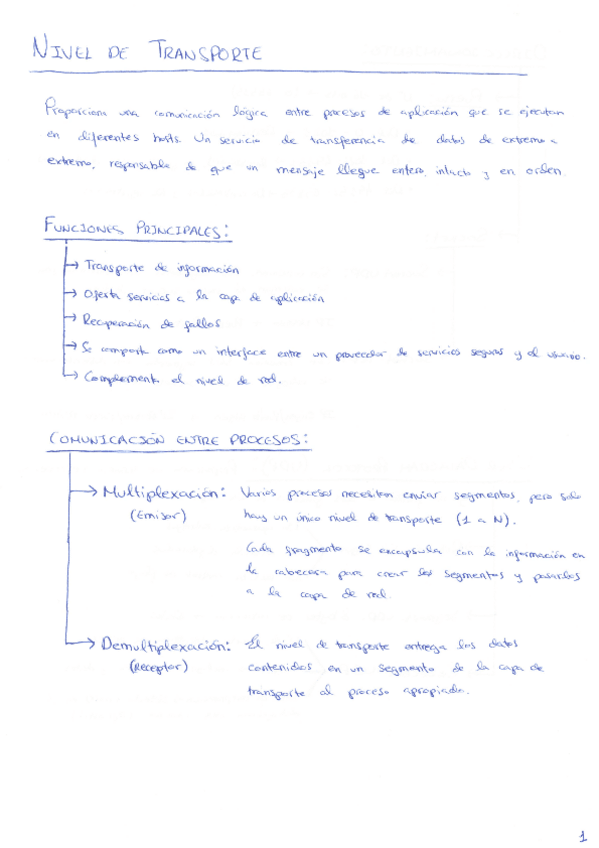 NIVEL DE TRANSPORTE
Proporciona una comunicación lógica entre procesos de aplicación que se ejecutan
en diferentes hosts. Un servicio de transferencia de datos de extremo a
extremo, responsable de que un mensaje llegue entero, intacto y en orden.
FUNCIONES PRINCIPALES:
→ Transporte de información
→ Oferta servicios a la capa de aplicación
→ Recuperación de fallos
→ Se comporta como un interface entre un proveedor de servicios seguros y el usuario.
→ Complementa el nivel de red.
COMUNICACIÓN ENTRE PROCESOS:
→ Multiplexación: Varios procesos necesitan enviar segmentos, pero solo
(Emisor) hay un único nivel de transporte (1 a N).
Cada fragmento se encapsula con la información en
la cabecera para crear los segmentos y pasarlos
a la capa de red.
→ Demultiplexación: El nivel de transporte entrega los datos
(Receptor) contenidos en un segmento de la capa de
transporte al proceso apropiado.
1